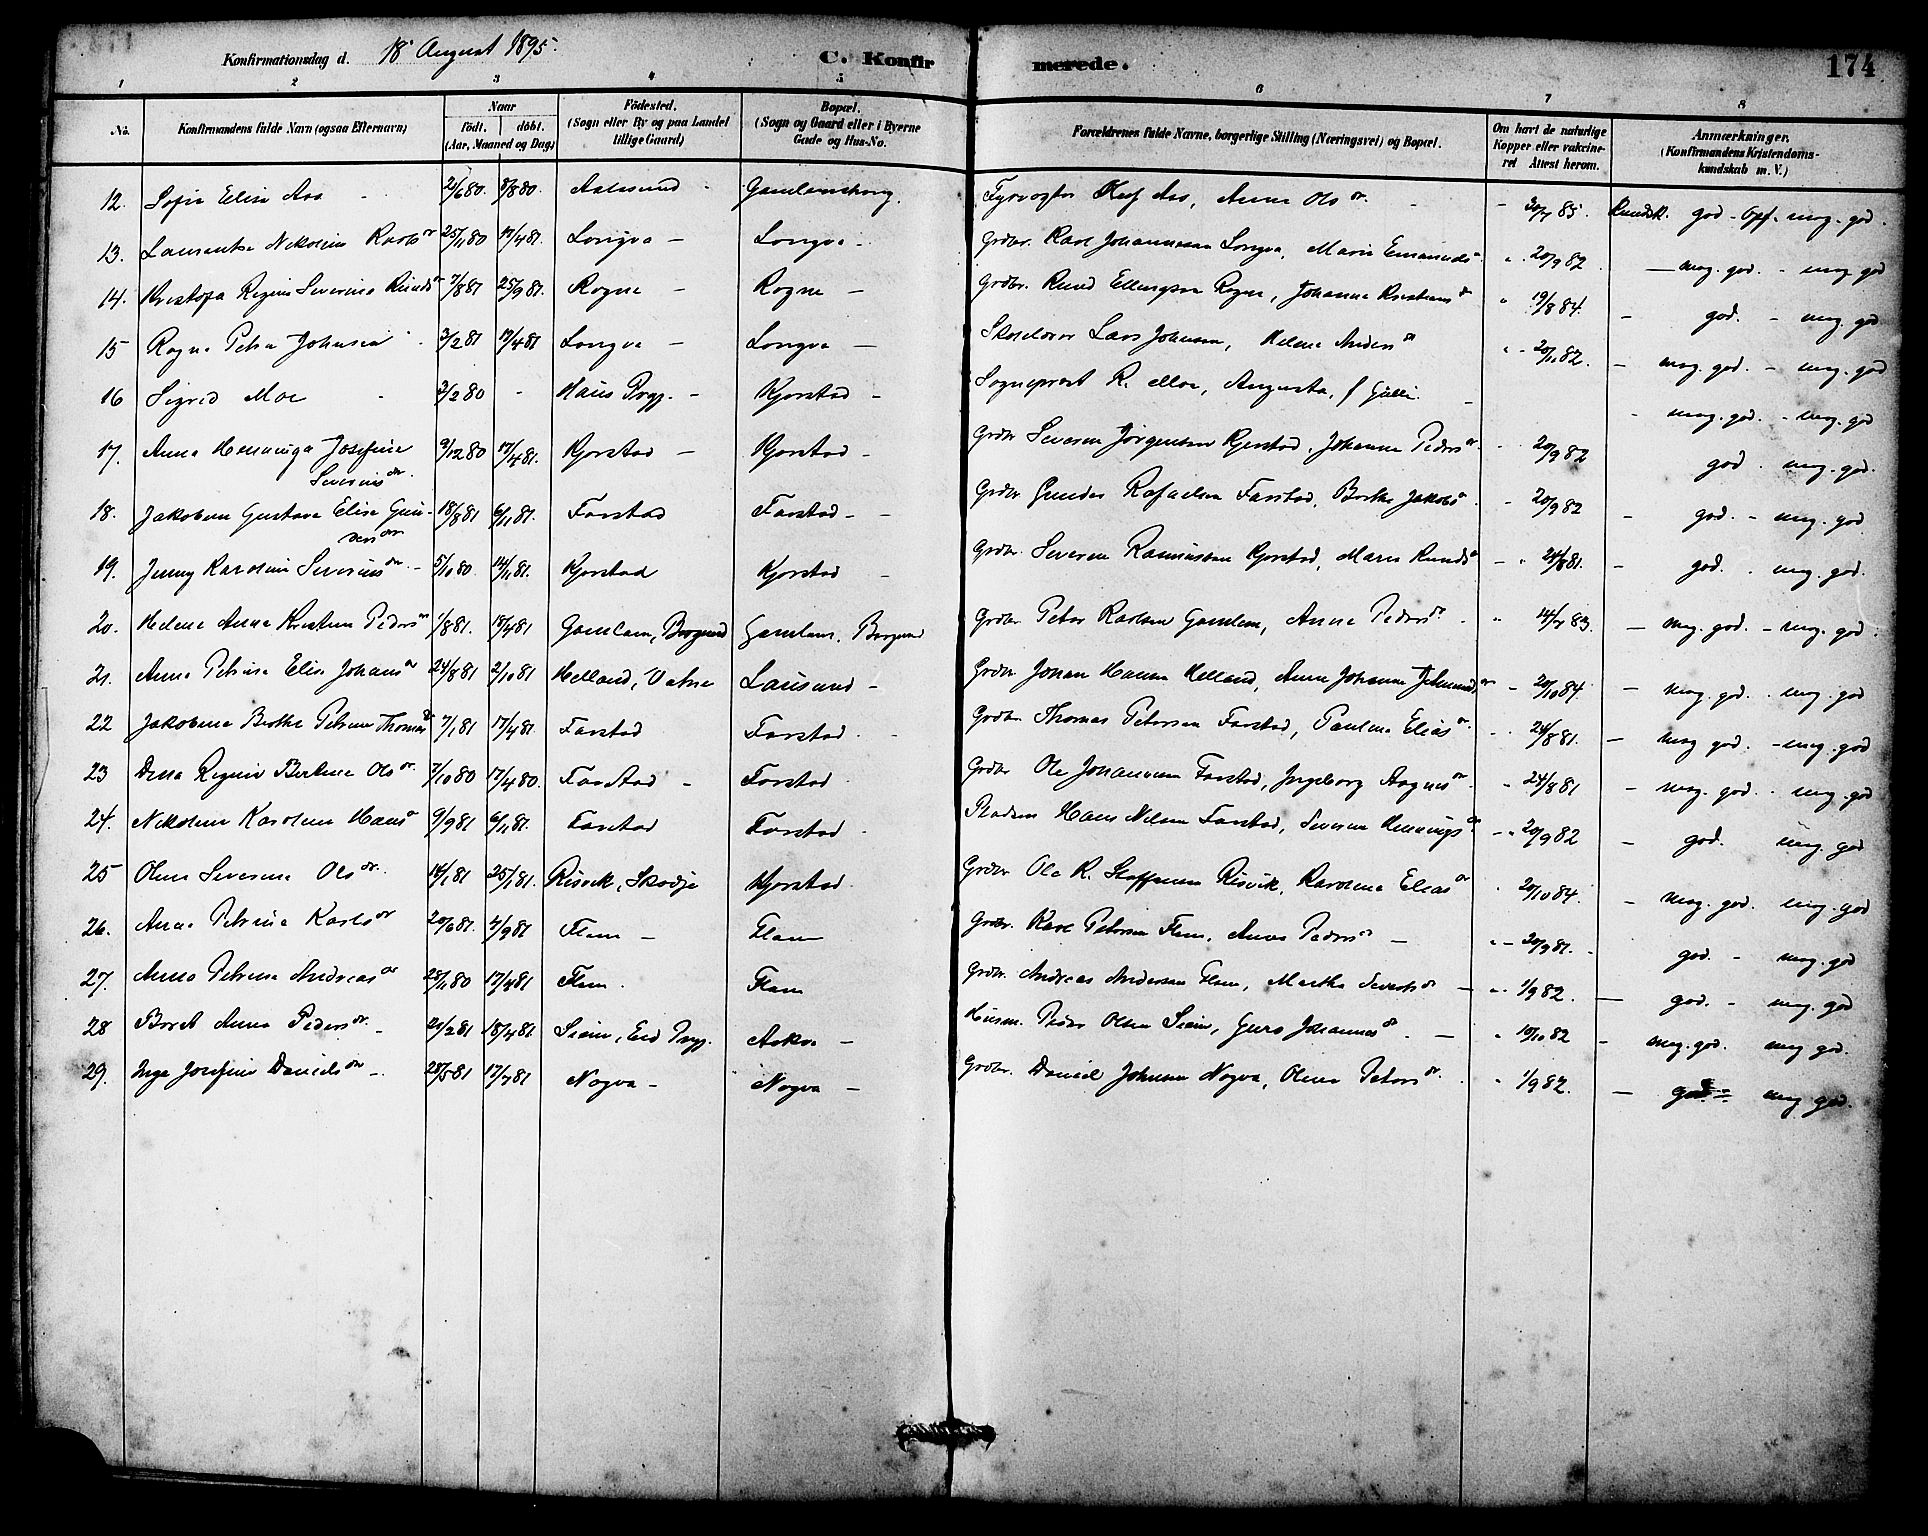 Konfirmationsdag d. 18 August 1895. C. Konfirmerede. 174
1 2 3 4 5 6 7 8
No. Konfirmandens fulde Navn (ogsaa Efternavn) Naar födt. döbt. (Aar, Maaned og Dag) Födested. (Sogn eller By og paa Landet tillige Gaard) Bopæl. (Sogn og Gaard eller i Byerne Gade og Hus-No. Forældrenes fulde Navne, borgerlige Stilling (Næringsvei) og Bopæl. Om havt de naturlige Kopper eller vakcineret Attest herom. Anmærkninger. (Konfirmandens Kristendomskundskab m. V.)
12. Sofie Elise Aas 2/6 80. 8/8 80. Aalesund Gamlemshaug. Fyrvogter Olaf Aas, Anna Olsdr. 85. Kundsk. god - Opf. meg. god.
13. Laurentse Nikoline Karlsdr 25/11 80 17/4 81. Longva - Longva - Grdbr. Karl Johannessen Longva, Marie 20/9 82 - meg. god. - meg. god
14. Kristofa Regine Severine Knudsdr 7/8 81 25/9 81. Rogne - Rogne - Grdbr. Knud Ellingsen Rogne, Johanne Kristiansdr 19/8 84. - god. - meg. god
15 Ragna Petra Johnsen 3/2 81 17/4 81 Longva - Longva - Skolelærer Lars Johnsen, Helene Andersdr 20/11 82. - meg. god. - meg. god
16 Sigrid Moe 3/2 80 - Haus Prgj. - Kjerstad - Sogneprest R. Moe, Augusta, f - meg. god. - meg. god
17. Anna Henninga Josefine Severinsdr. 9/12 80 17/4 81. Kjerstad - Kjerstad - Grdbr Severin Jørgensen Kjerstad, Johanna Pedersdr 20/9 82 god. meg. god.
18. Jakobine Gustava Elise Gundersdr 18/8 81 6/11 81. Farstad Farstad - Grdbr Gunder Rafaelsen Farstad, Berthe Jakobsdr 20/9 82 - god. - meg. god
19. Jenny Karoline Severinsdr. 5/10 80. 14/11 81. Kjerstad Kjerstad - Grdbr. Severin Rasmussen Kjerstad, Maren Knudsdr 24/8 81. - god. meg. god.
20. Helene Anna Kristine Pedersdr 1/8 81. 18/4 81 Gamlem, Borgund Gamlem, Borgund Grdbr. Peter Karlsen Gamlem, Anne Pedersdr. 83. - meg. god. - meg. god.
21. Anna Petrine Elise Johansdr 24/8 81 2/10 81 Helland, Vatne Lausund - Grdbr. Johan Hansen Helland, Anne Johanna 20/10 84. - meg. god. meg. god
22 Jakobine Berthe Petrine Thomasdr 7/1 81 17/4 81 Farstad Farstad. Grdbr. Thomas Petersen Farstad, Pauline Eliasdr. 24/8 81. - meg god. - meg. god
23 Regine Bertine Olsdr. 7/10 80 17/4 80. Farstad - Farstad Grdbr Ole Johannesen Farstad, Ingeborg 24/8 81 - meg. god. meg. god
24. Nikoline Karoline Hansdr 9/9 81 6/11 81. Farstad Farstad. Hans Nilsen Farstad, Severine Henningsdr 20/9 82 - god. meg. god
25 Oline Severine Olsdr. 14/1 81 25/1 81. Risvik, Skodje Kjerstad. Grdbr. Ole K. Steffensen Risvik, Karoline Eliasdr 20/10 84. - meg. god. meg. god
26. Anna Petrine Karlsdr 20/6 81. 4/9 81 Flem - Flem Grdbr. Karl Petersen Flem, Anne Pedersdr - 20/9 81. god. - meg. god
27. Anna Petrine Andreasdr 28/11 80 17/4 81 Flem. Flem Grdbr. Andreas Andersen Flem, Marthe Sivertsdr - 1/9 82. - god. - meg. god
28 Beret Anna Pedersdr. - 21/2 81 18/4 81 Siem, Eid Prgj. Askø - Husm. Peder Olsen Siem, Guro Johannesdr. - 10/10 82 - meg. god. meg god.
29. Inga Josefine Danielsdr - 28/5 81 17/7 81 Nogva - Nogva - Grdbr. Daniel Johnsen Nogva, Oline Petersdr. 1/9 82. - god - meg god.